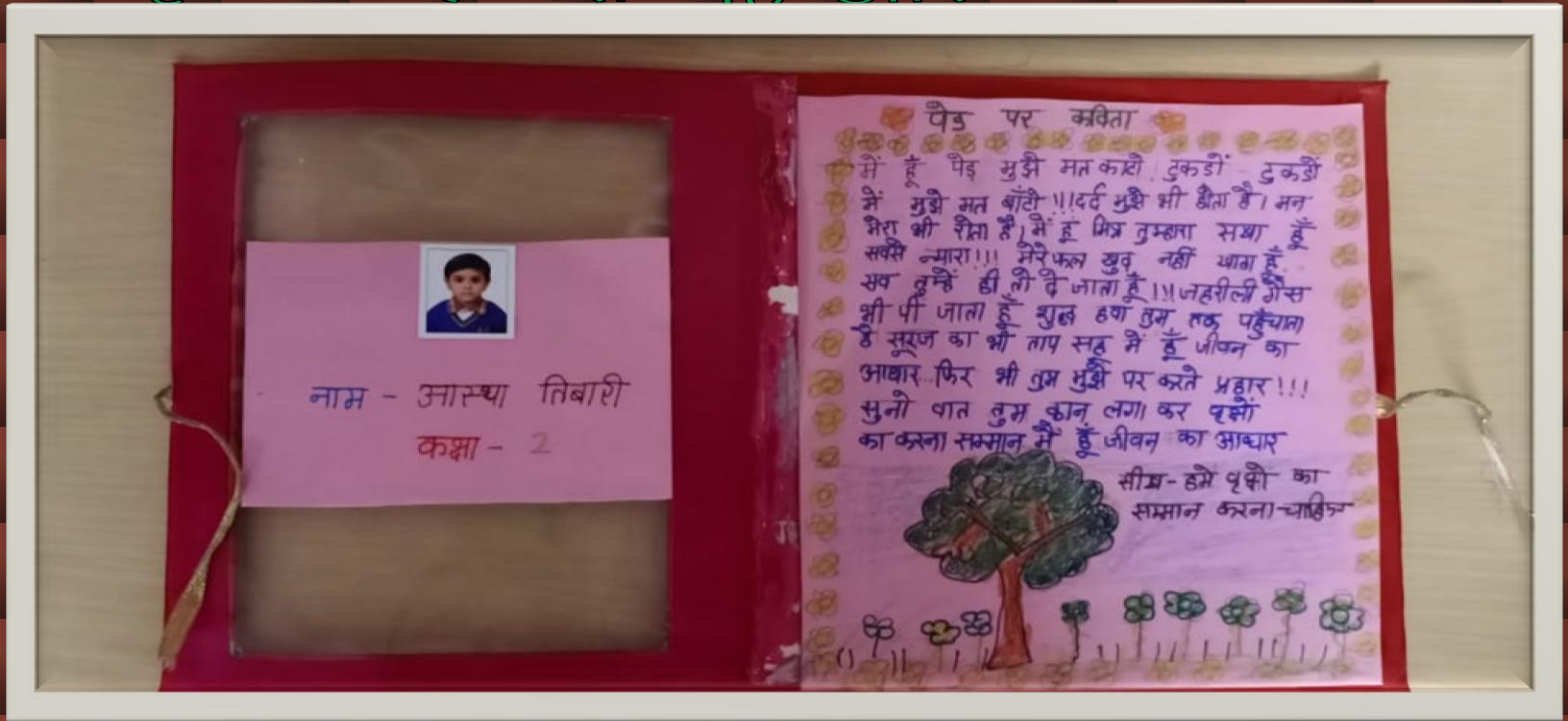 नाम - आस्था तिबारी
कक्षा - 2
पेड पर कविता
में हूँ पेड़ मुझे मत काटो टुकडों टुकडों
में मुझे मत बाँटो !!! दर्द मुझे भी होता है। मन
मेरा भी रोता है, में हूँ मित्र तुम्हारा सखा हूँ
सबसे न्यारा!!! मेरे फल खुद नहीं खाता हूँ
सब तुम्हें ही तो दे जाता हूँ !!! जहरीली गैस
भी पी जाता हूँ शुद्ध हवा तुम तक पहुँचाता
है सूरज का भी ताप सह में हूँ जीवन का
आधार फिर भी तुम मुझे पर करते प्रहार!!!
सुनो बात तुम कान लगा कर वृक्षों
का करना सम्मान में हूँ जीवन का आधार
सीख - हमे वृक्षो का
सम्मान करना चाहिए